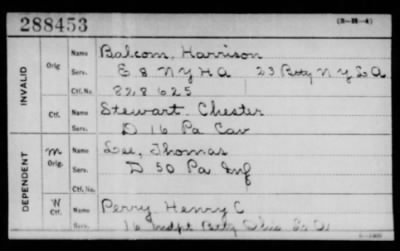 288453
(3-111-4)
INVALID
Orig
Name
Balcom, Harrison
Serv.
E 8 N Y H A 23 Baty N Y L A
Ctf. No.
828 625
Ctf.
Name
Stewart, Chester
Serv.
D 16 Pa Cav
DEPENDENT
m
Orig.
Name
Lee, Thomas
Serv.
D 50 Pa Inf
Ctf. No.
W
Ctf.
Name
Perry Henry C
Serv.
16 Indpt Baty Ohio L A